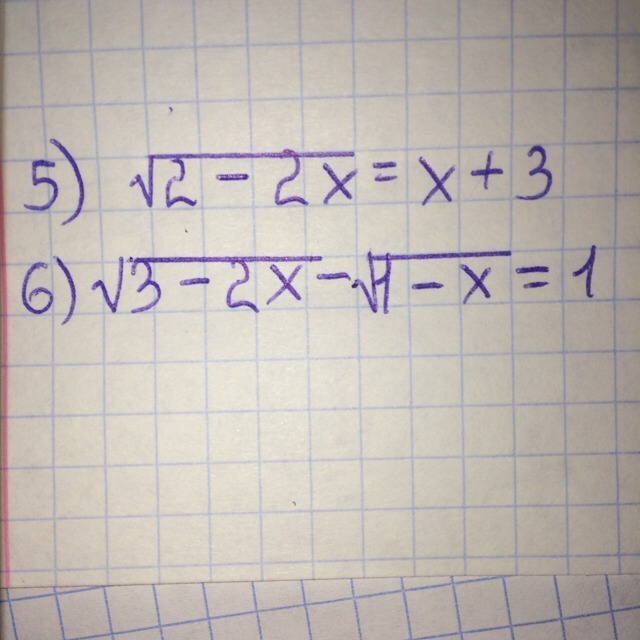 5) √2 - 2x = x + 3
6) √3 - 2x - √1 - x = 1